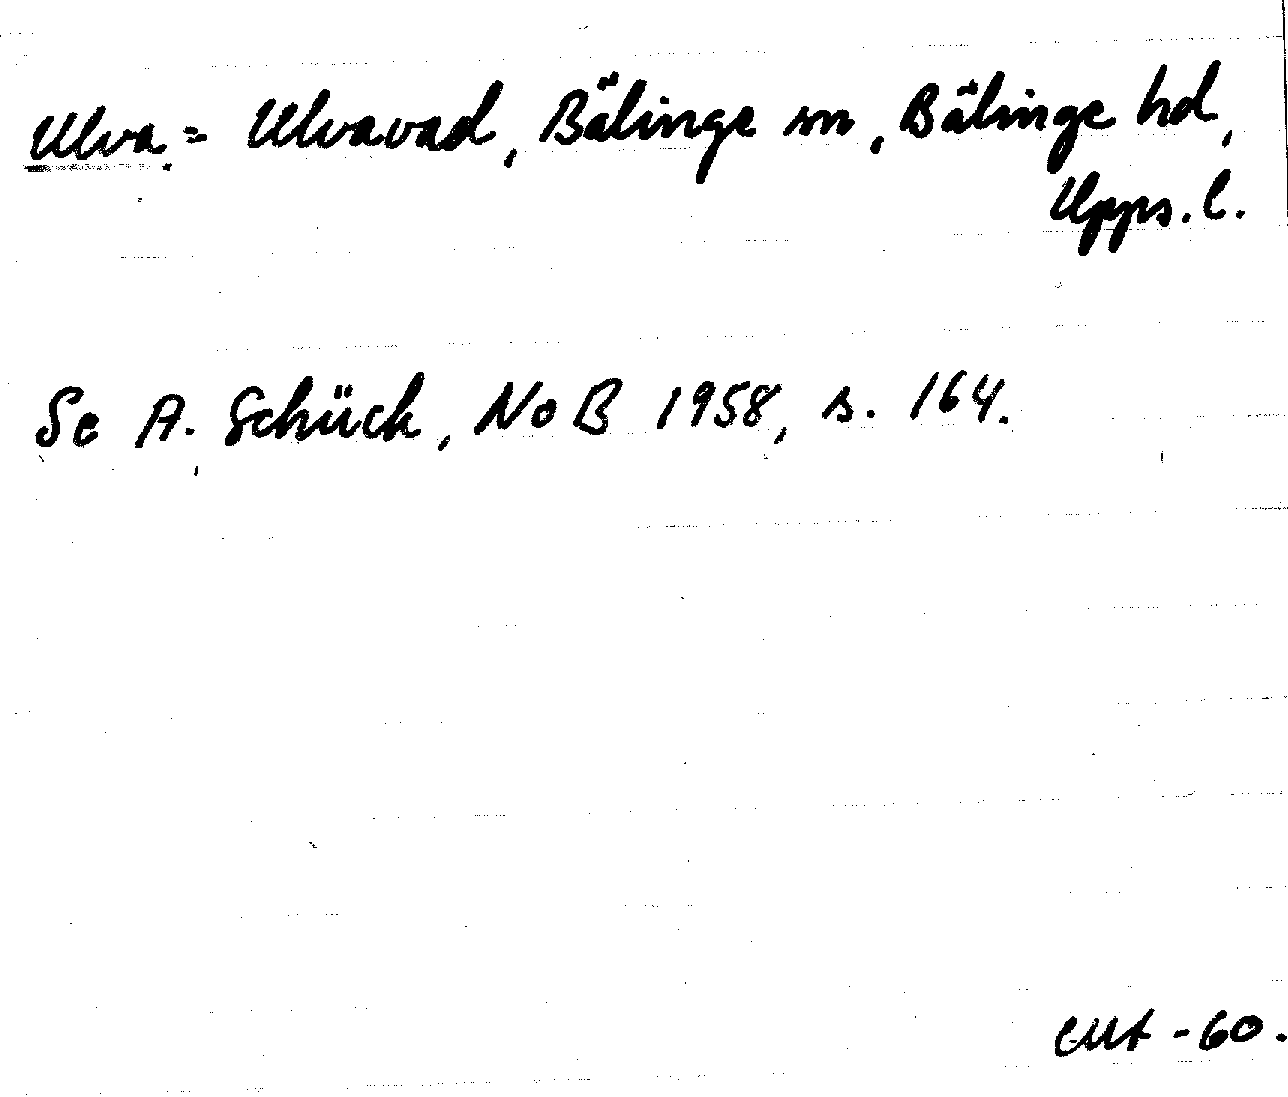 Ulva = Ulvavad, Bälinge sn, Bälinge hd,
Upps. l.
Se A. Schück, NoB 1958, s. 164.
-60.